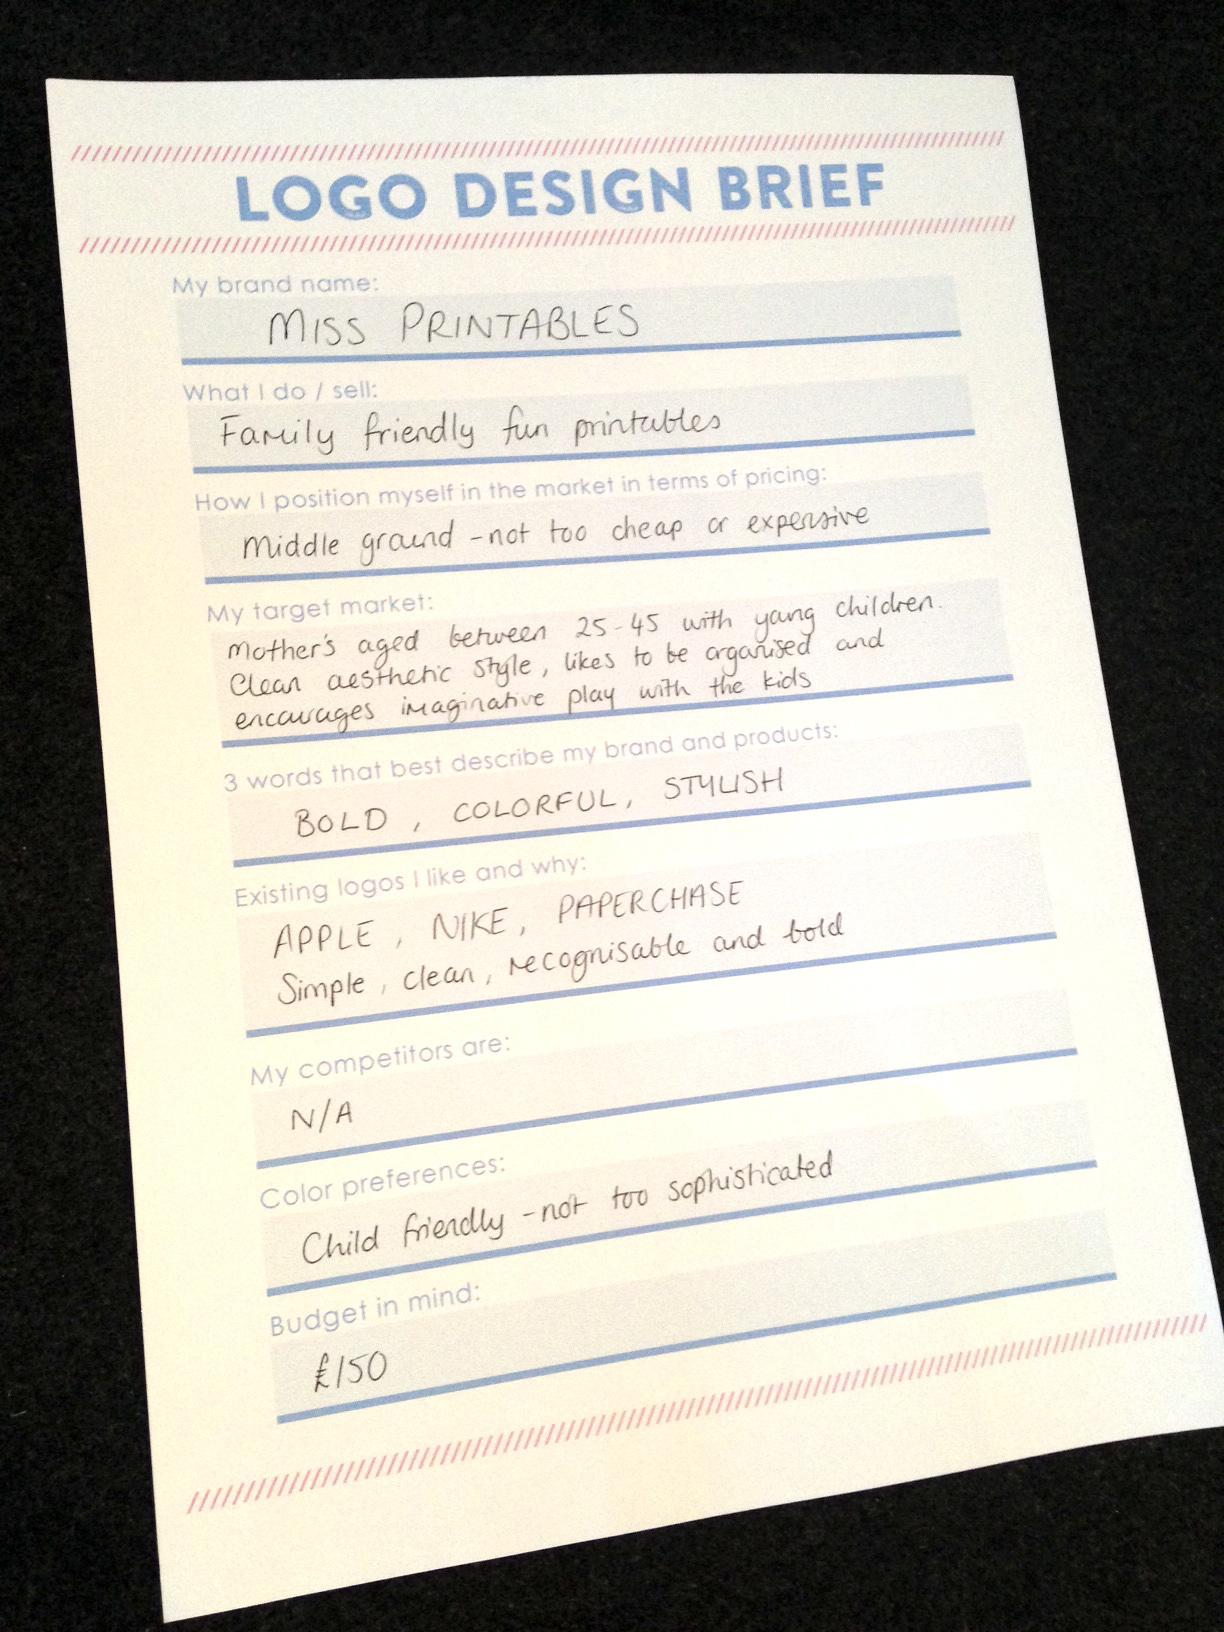 LOGO DESIGN BRIEF
My brand name:
MISS PRINTABLES
What I do / sell:
Family friendly fun printables
How I position myself in the market in terms of pricing:
Middle ground - not too cheap or expensive
My target market:
Mother's aged between 25-45 with young children.
Clean aesthetic style, likes to be organised and
encourages imaginative play with the kids
3 words that best describe my brand and products:
BOLD , COLORFUL, STYLISH
Existing logos I like and why:
APPLE , NIKE, PAPERCHASE
Simple, clean, recognisable and bold
My competitors are:
N/A
Color preferences:
Child friendly - not too sophisticated
Budget in mind:
£150